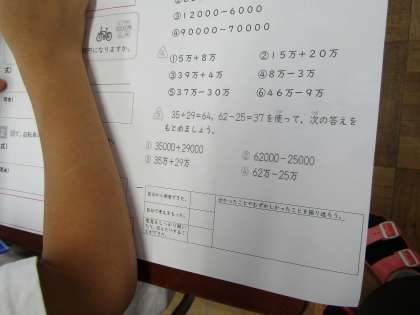 ③12000−6000
④90000−70000
円になりますか。
4
①5万+8万
②15万+20万
③39万+4万
④8万−3万
⑤37万−30万
⑥46万−9万
5 35+29=64, 62−25=37を使って, 次の答えを
もとめましょう。
① 35000+29000
② 62000−25000
③ 35万+29万
④ 62万−25万
式)
式)
自分から学習できた。
自分で考えをもった。
わかったことやむずかしかったことを振り返ろう。